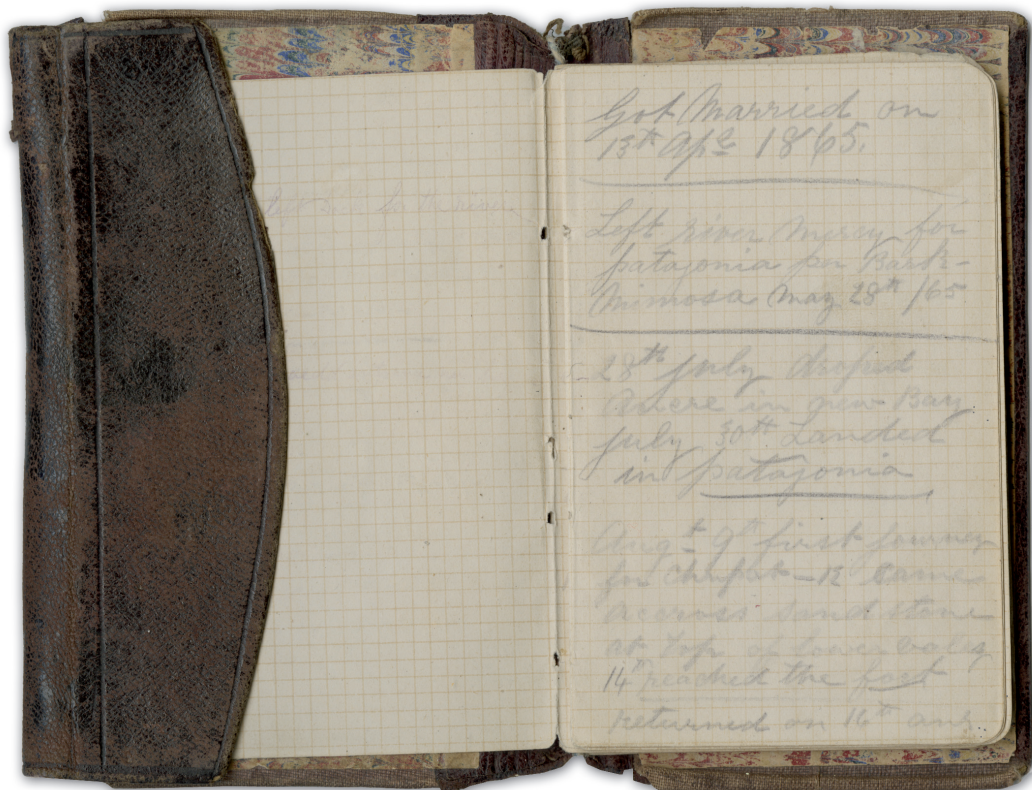 Got Married on
13th Apl 1865.
Left river Mersy for
patagonia per Bark
Mimosa May 28th /65
28th july droped
Ancre in new Bay
july 30th Landed
in patagonia
Augt 9th first journey
for Chupat - 12 came
accross sand stone
at Top of lower valey
14th reached the fort
returned on 16th